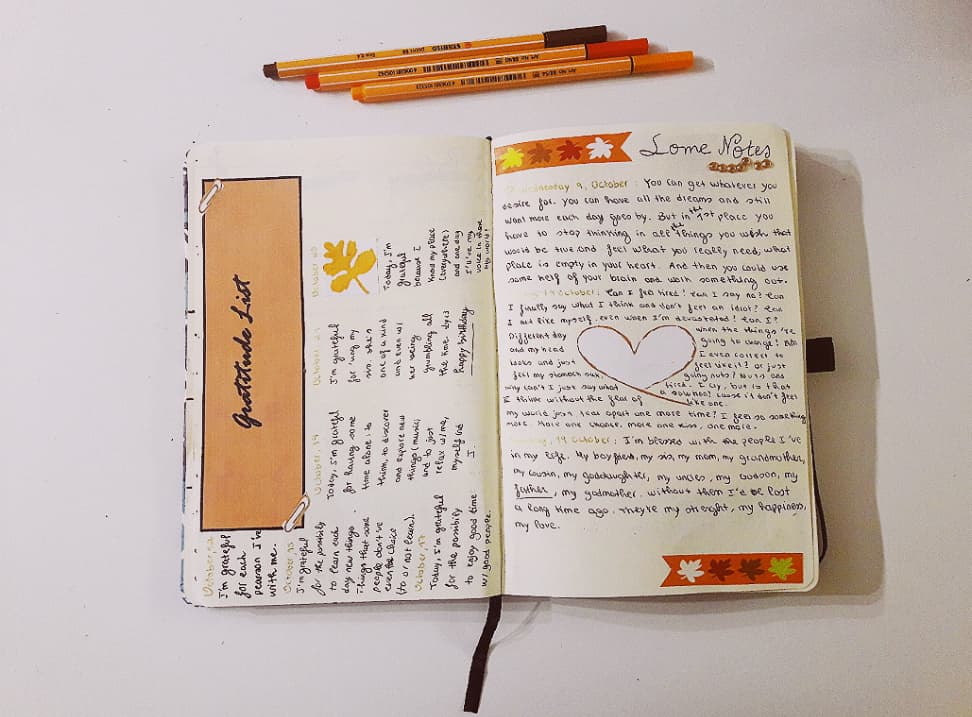 STABILO point 88
Gratitude List
October, 12
I'm grateful
for each
pearson I've
with me.
October, 15
I'm grateful
for the posibily
to learn each
day new things.
Things that some
people don't've
even the choice
(to or not learn).
October, 17
Today, I'm grateful
for the possibily
to enjoy good time
w/ good people.
October, 19
Today, I'm grateful
for having some
time alone: to
think, to discover
and expore new
things (music)
and to just
relax w/me,
myself and
I.
October
I'm grateful
for 'ving my
sis. she's
one of a kind
and even w/
her being
grumbling all
the time. Lyis
happy birthday
October
Today, I'm
grateful
because I
know my place
(everywhere)
and one day
I'll've my
voice in there
Some Notes
Wednesday 9, October: You can get whatever you
desire for. you can have all the dreams and still
want more each day goes by. But in the 1st place you
have to stop thinking in all the things you wish that
would be true and feel what you really need, what
place is empty in your heart. And then you could use
some help of your brain and work something out.
October: Can I feel tired? Can I say no? Can
I finally say what I think and don't feel an idiot? Can
I act like myself, even when I'm devastated? Can I?
Different day when the things 're
and my head going to change?
looks and just I even correct to
feel my stomach sick. feel like it? or just
why can't I just say what going nuts? Nuts and
I think without the fear of tired. I cry, but is that
my world just tear apart one more time? I feel so something
more. More one chance, more one kiss, one more.
19 October: I'm blessed with the people I've
in my life. My boyfriend, my sis, my mom, my grandmother,
my cousin, my goddaughter, my uncles, my cousin, my
father, my godmother. without them I'd be lost
a long time ago. They're my strenght, my happiness,
my love.